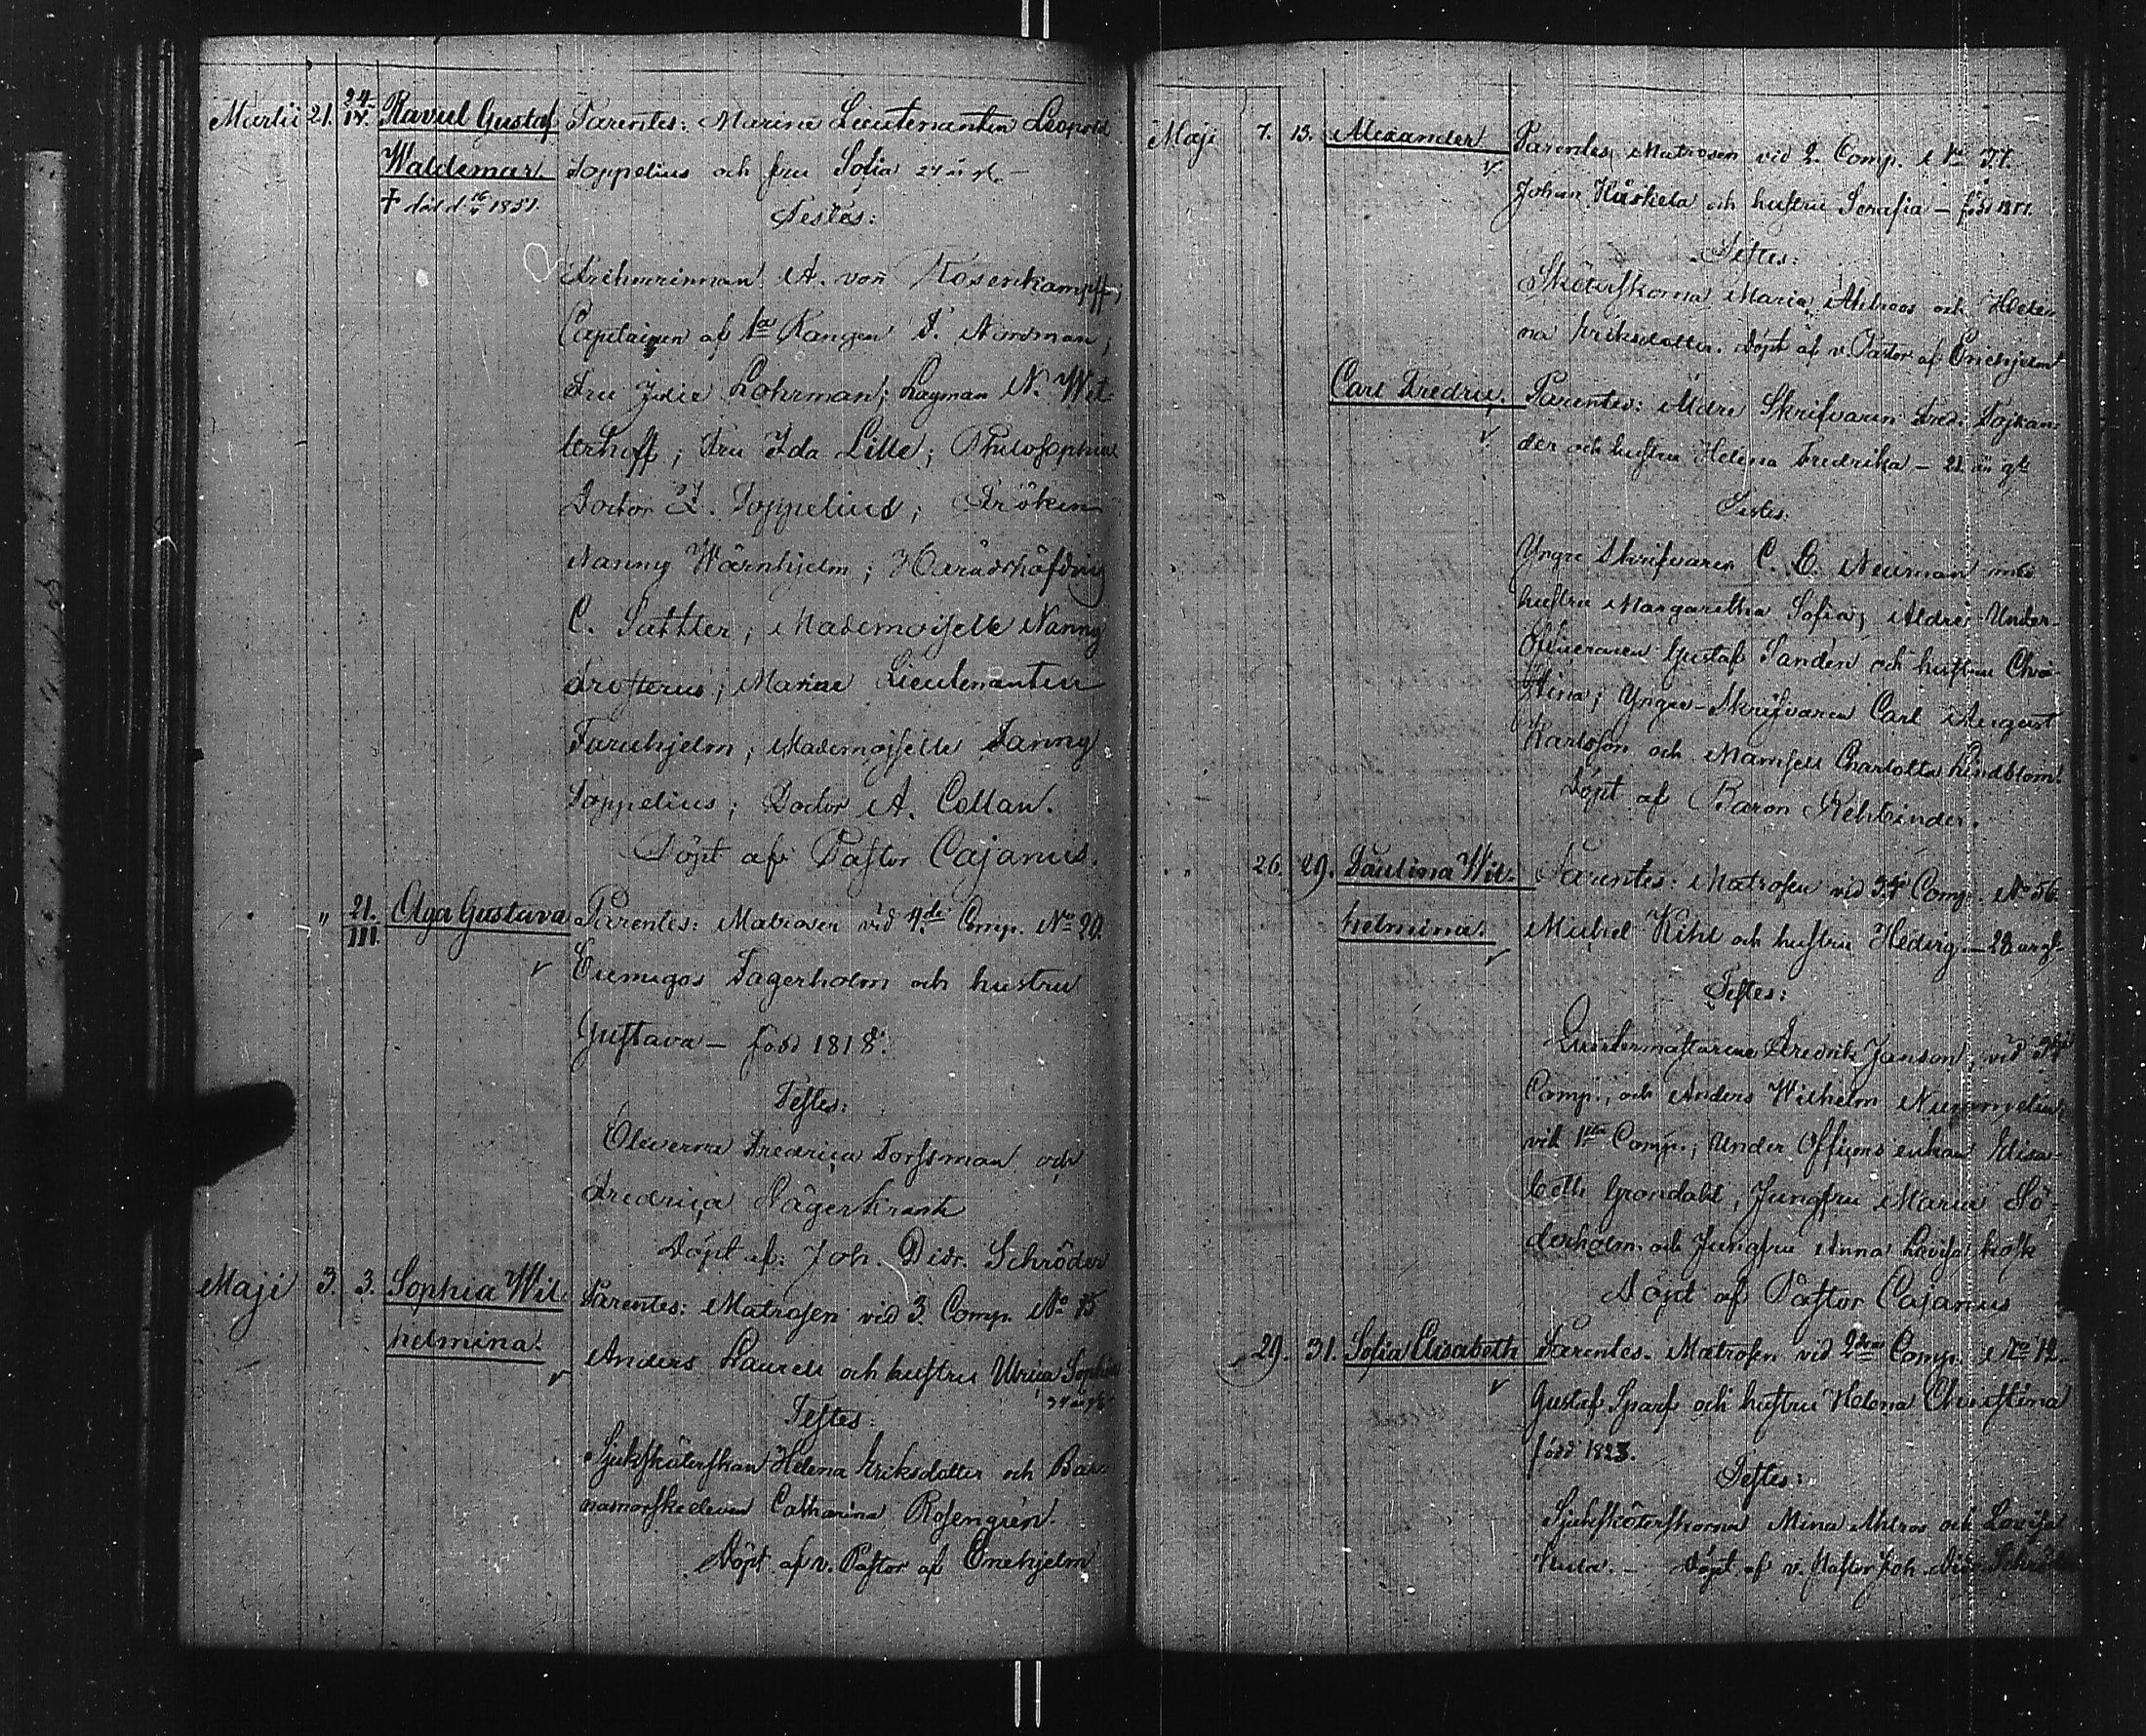 Martii 21. 24/IV. Raoul Gustaf Parentes: Marine Lieutenanten Leopold
Waldemar Toppelius och fru Sofia 24 år gl. —
† död d. 16 1851.
Testes:
A. von Rosenkampff;
Capitainen af 1a Rangen Nordman;
Fru Julie Lohrman; Lagman N. Wet-
terhoff; Fru Ida Lille; Philosophiæ
Doctor Z. Toppelius; Fröken
Nanny Wärnhjelm; Häradshöfding
C. Sattler; Mademoiselle Nanny
Frosterus; Marine Lieutenanten
Furuhjelm; Mademoiselle Fanny
Toppelius; Doctor A. Collan.
Döpt af Pastor Cajanus.
" 21./III. Olga Gustava Parentes: Matrosen vid 4de Comp. No 20.
Fagerholm och hustru
Gustava — född 1818.
Testes:
Fredrica Forssman och
Fredrica Nägerkrank
Döpt af: Joh. Didr. Schröder
Maji 3. 3. Sophia Wil- Parentes: Matrosen vid 3. Comp. No 15
helmina. Anders Laurell och hustru Ulrica Sophia
34 år gl.
Testes:
Sjuksköterskan Helena Eriksdotter och Bar-
namorskeeleven Catharina Rosengrén.
Döpt af v. Pastor af Enehjelm
Maji 7. 13. Alexander Parentes, Matrosen vid 2. Comp. No 37.
Johan Härkelä och hustru Serafia — född
Testes:
Sköterskorna Maria Ahlroos och Hele-
na Eriksdotter. Döpt af v. Pastor af Enehjelm
Carl Fredric. Parentes: Äldre Skrifvaren Fred. Tojkan-
der och hustru Helena Fredrika — 22 år gl.
Testes:
Yngre Skrifvaren C. E. Neuman med
hustru Margaretha Sofia; Äldre Under-
Officeraren Gustaf Sandén och hustru Chri-
stina; Yngre Skrifvaren Carl August
Karlsson och Mamsell Charlotta Lindblom.
Döpt af Baron Rehbinder.
" 26. 29. Paulina Wil- Parentes: Matrosen vid 3dje Comp. No 56.
helmina. Michel Kihl och hustru Hedvig — 28 år gl.
Testes:
Quartermästarene Fredrik Janson, vid 3dje
Comp., och Anders Wilhelm Nummelin,
vid 1sta Comp.; Under Officers enkan Elisa-
beth Grondahl, Jungfru Maria Sö-
derholm och Jungfru Anna Lovisa Kosk
Döpt af Pastor Cajanus
" 29. 31. Sofia Elisabeth Parentes. Matrosen vid 2dra Comp. No 12.
Gustaf Sparf och hustru Helena Christina
född 1823.
Testes:
Sjuksköterskorna Mina Ahlros och Lovisa
Döpt af v. Pastor Joh. Didr. Schröder